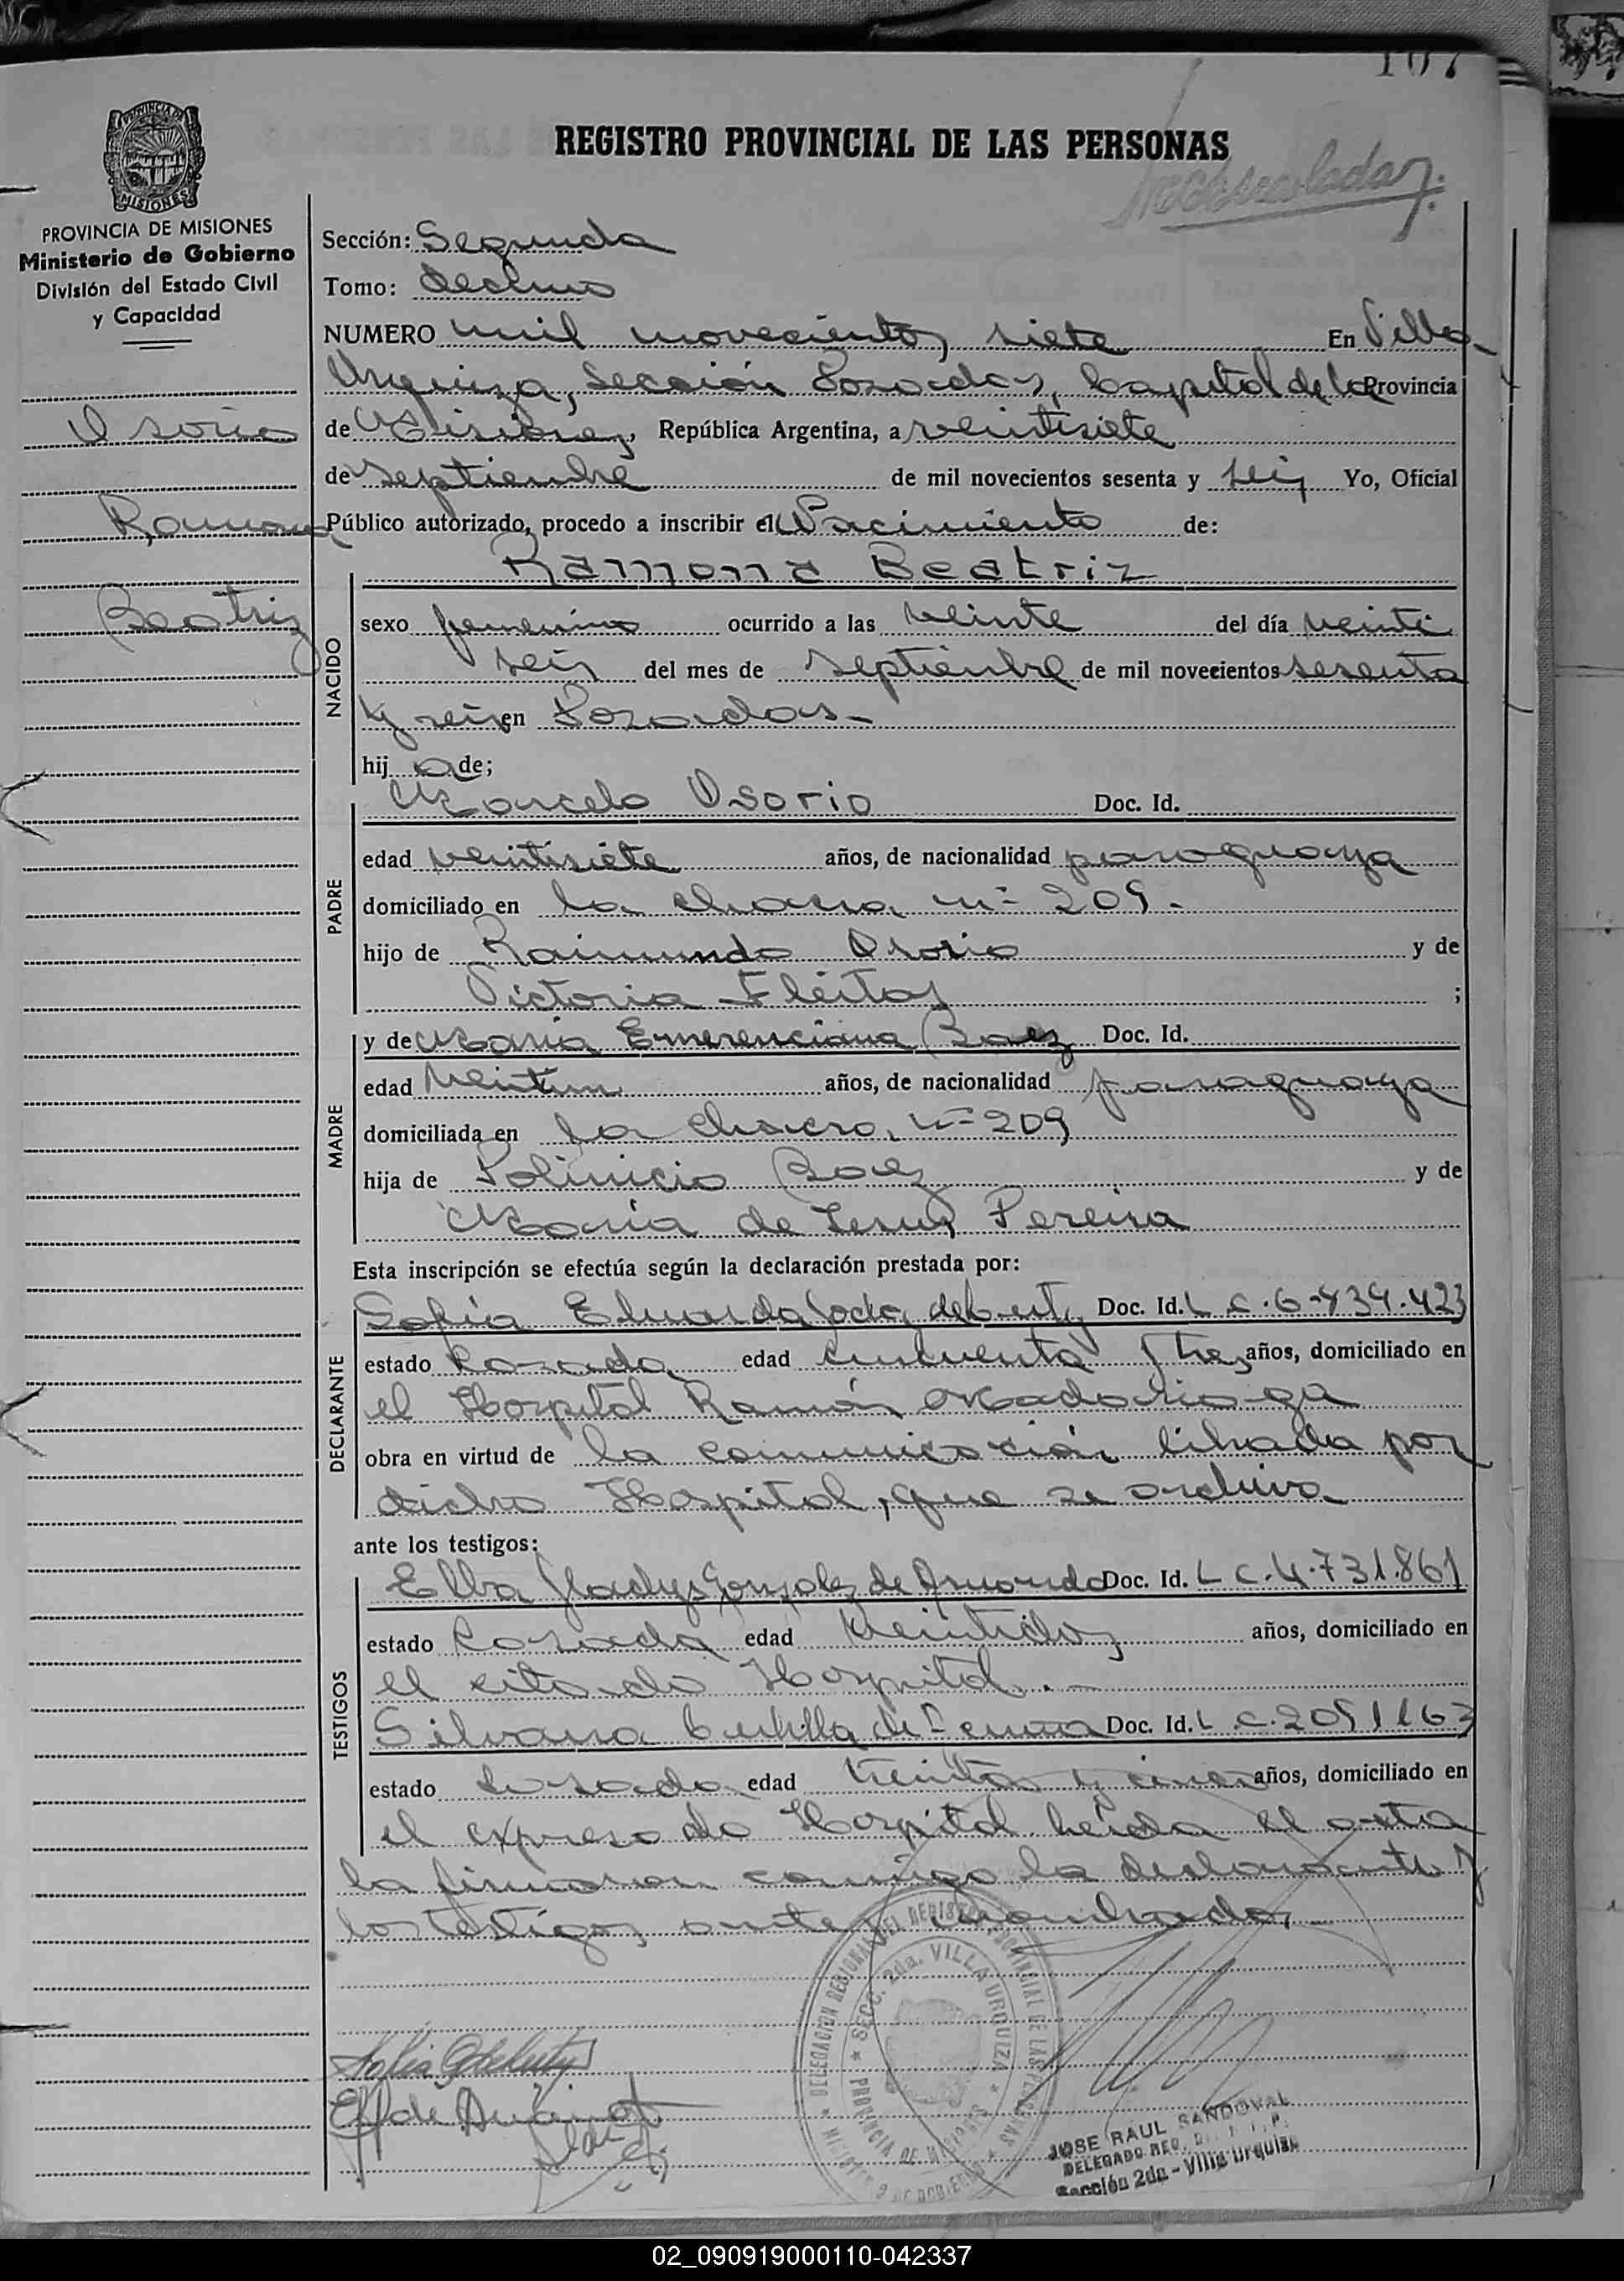 107
REGISTRO PROVINCIAL DE LAS PERSONAS
PROVINCIA DE MISIONES
Ministerio de Gobierno
División del Estado Civil
y Capacidad
Osorio
Ramona
Beatriz
Sección: Segunda
Tomo: Decimo
NUMERO mil novecientos siete En Villa
Urquiza, Sección Posadas, Capital de la Provincia
de Misiones, República Argentina, a veintisiete
de septiembre de mil novecientos sesenta y seis Yo, Oficial
Público autorizado, procedo a inscribir el Nacimiento de:
Ramona Beatriz
NACIDO
sexo femenino ocurrido a las veinte del día veinti
seis del mes de septiembre de mil novecientos sesenta
y seis en Posadas.-
hij a de;
PADRE
Marcelo Osorio Doc. Id.
edad veintisiete años, de nacionalidad paraguaya
domiciliado en la chacra nº 209.-
hijo de Raimundo Osorio y de
Victoria Fleitas ;
MADRE
y de Maria Emerenciana Baez Doc. Id.
edad veintiun años, de nacionalidad paraguaya
domiciliada en la chacra nº 209
hija de Polinicio Baez y de
Maria de Jesus Pereira
Esta inscripción se efectúa según la declaración prestada por:
DECLARANTE
Sofia Eduarda Doc. Id. L.C.
estado Casada edad cincuenta y tres años, domiciliado en
el Hospital Ramón Madariaga
obra en virtud de la comunicación librada por
dicho Hospital, que se archiva
ante los testigos:
TESTIGOS
Elba Gladys Gonzalez de Doc. Id. L C. 4.731.861
estado Casada edad veintidos años, domiciliado en
el citado Hospital.-
Silvana de Doc. Id. L.C. 2051163
estado Casada edad treinta y cinco años, domiciliado en
el expresado Hospital leída el acta
la firmaron conmigo la declarante y
los testigos ante nombrados.-
DELEGACION REGIONAL DEL REGISTRO PROVINCIAL DE LAS PERSONAS
SECC. 2da. VILLA URQUIZA
PROVINCIA DE MISIONES
JOSE RAUL SANDOVAL
DELEGADO REG.
Sección 2da - Villa Urquiza
02_090919000110-042337